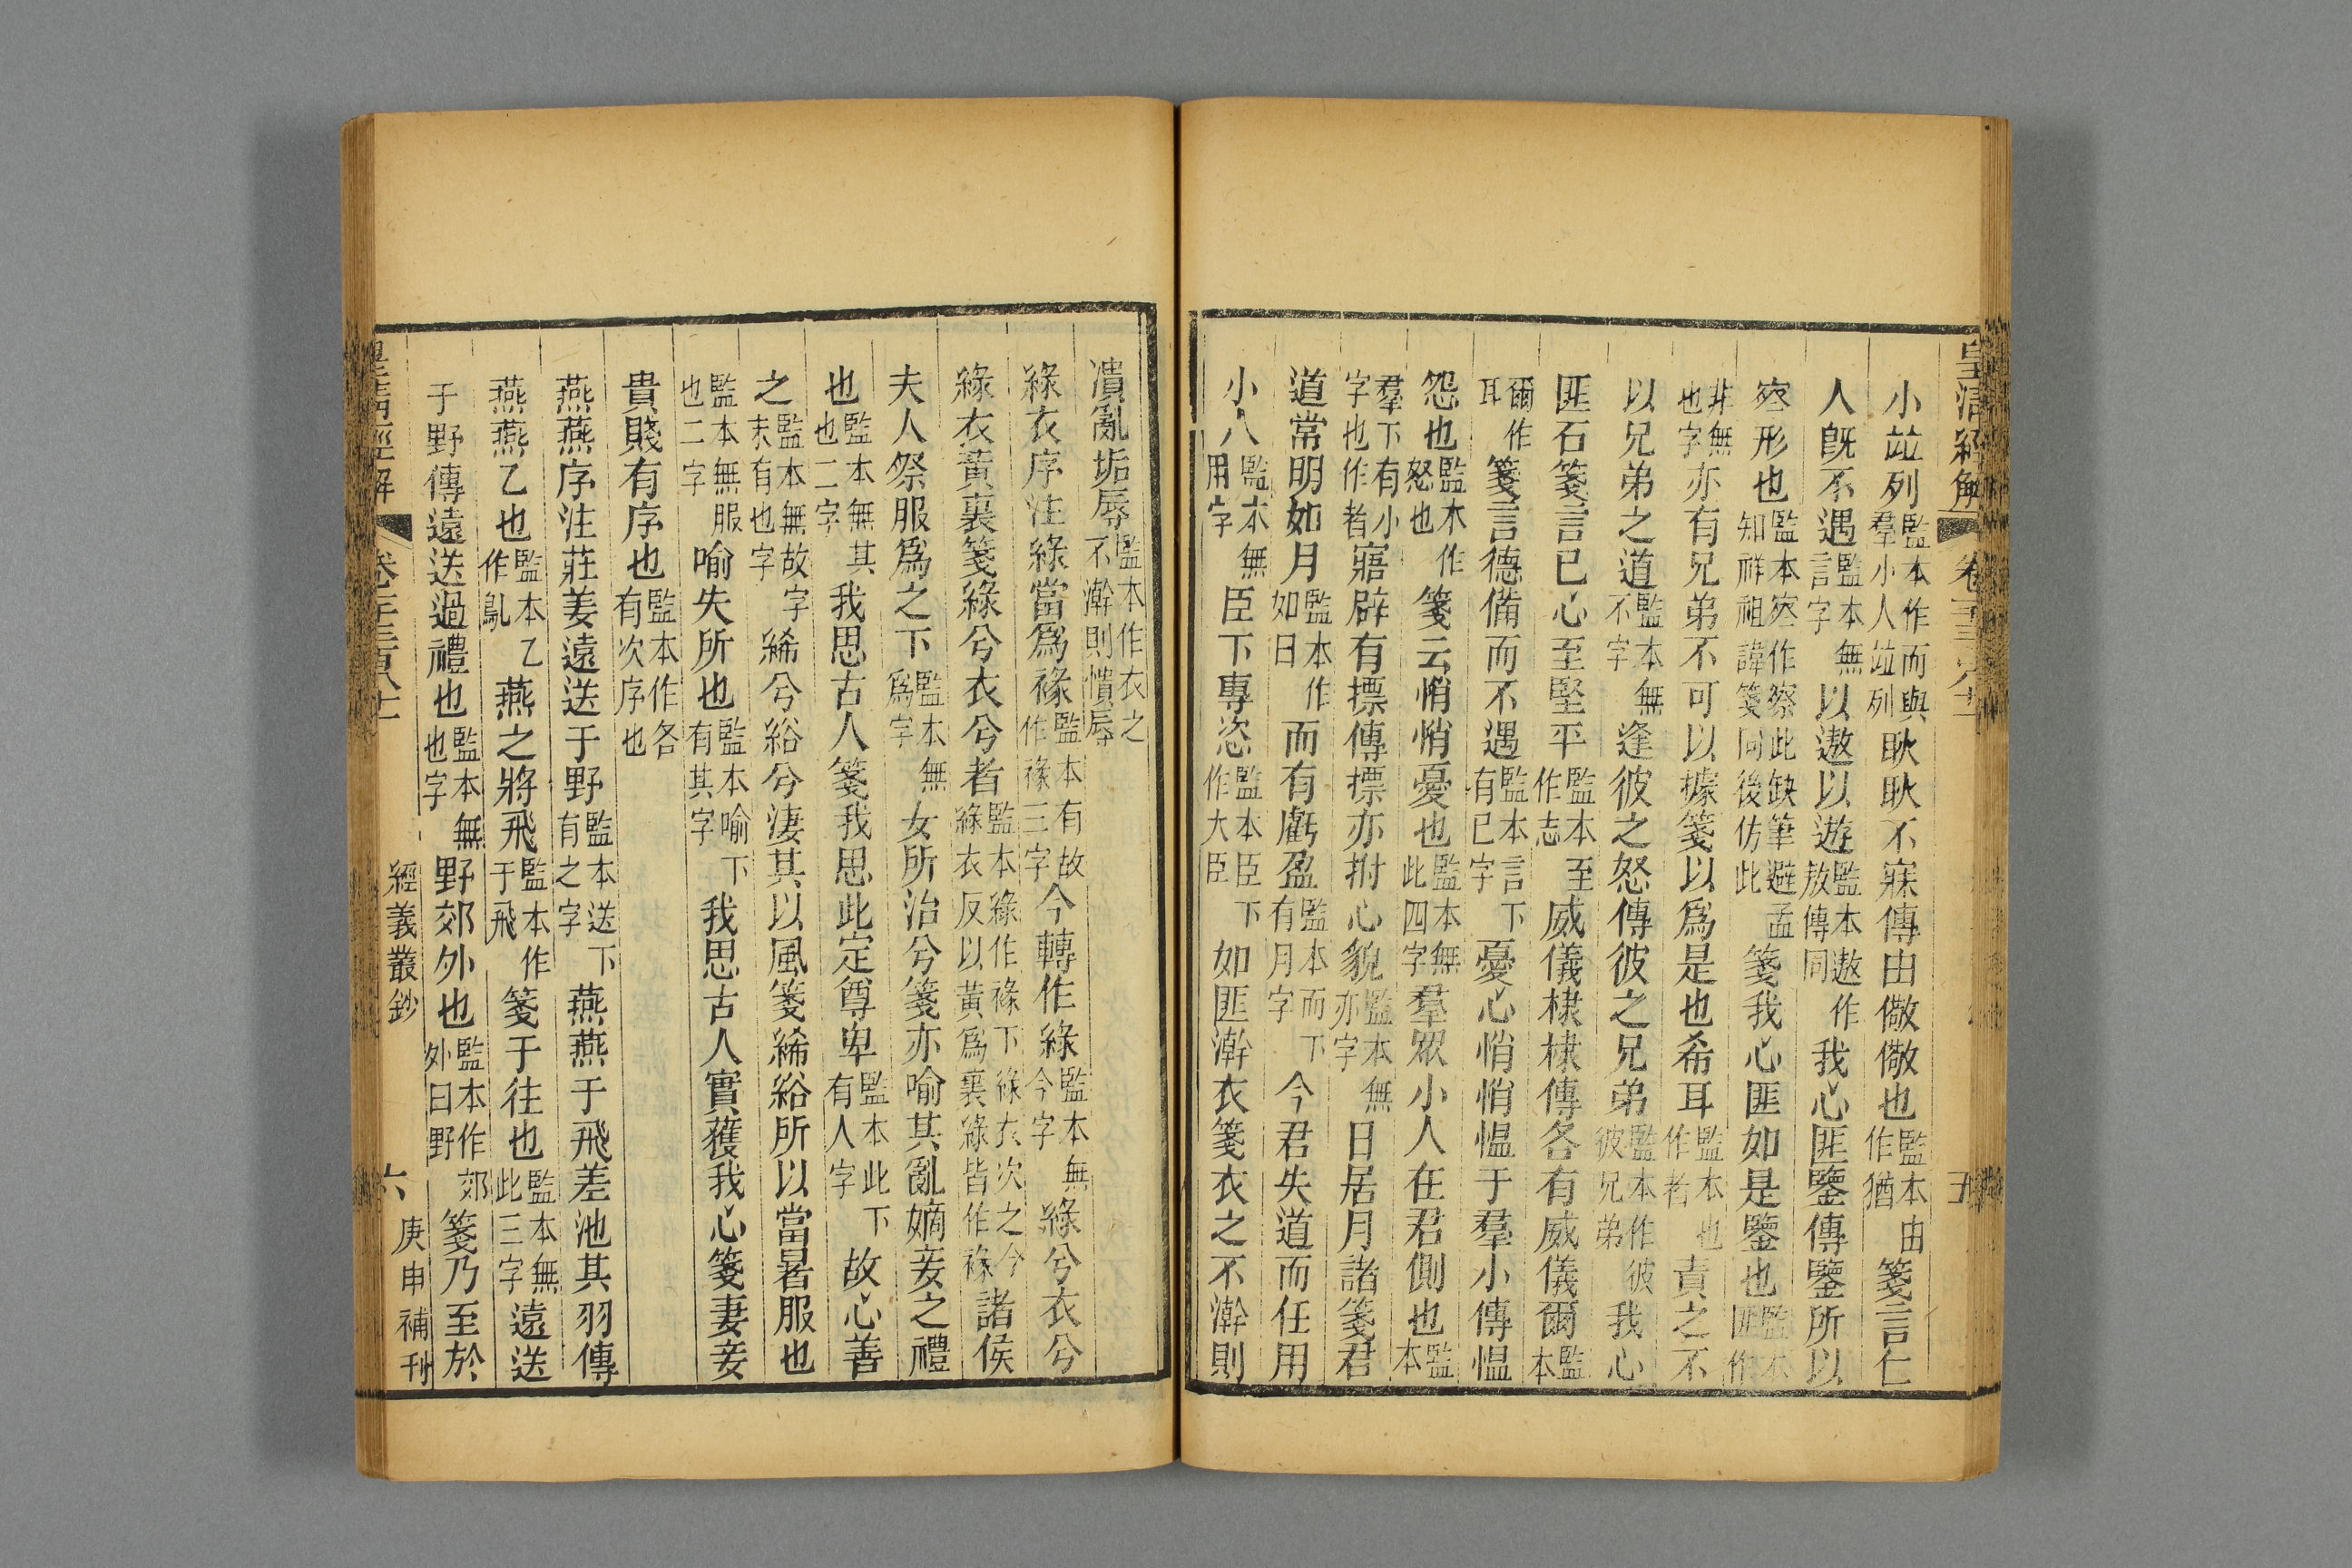 皇清經解
五
小竝列監本作而與羣小人竝列耿耿不寐傳由儆儆也監本由作猶箋言仁
人旣不遇監本無言字以遨以遊監本遨作敖傳同我心匪鑒傳鑒所以
察形也監本察作察此缺筆避孟知祥祖諱箋同後仿此箋我心匪如是鑒也監本匪作
非無也字亦有兄弟不可以據箋以爲是也希耳監本也作者責之不
以兄弟之道監本無不字逢彼之怒傳彼之兄弟監本作彼彼兄弟我心
匪石箋言已心至堅平監本至作志威儀棣棣傳各有威儀爾監本
爾作耳箋言德備而不遇監本言下有已字憂心悄悄慍于羣小傳慍
怨也監本作怒也箋云悄悄憂也監本無此四字羣眾小人在君側也監本
羣下有小字也作者寤辟有摽傳摽亦拊心貌監本無亦字日居月諸箋君
道常明如月監本作如日而有虧盈監本而下有月字今君失道而任用
小人監本無用字臣下專恣監本臣下作大臣如匪澣衣箋衣之不澣則
憒亂垢辱監本作衣之不澣則憒辱
綠衣序注綠當爲褖監本有故作褖三字今轉作綠監本無今字綠兮衣兮
綠衣黃裏箋綠兮衣兮者監本綠作褖下綠衣次之今綠衣反以黃爲裏綠皆作褖諸侯
夫人祭服爲之下監本無爲字女所治兮箋亦喻其亂嫡妾之禮
也監本無其也二字我思古人箋我思此定尊卑監本此下有人字故心善
之監本無故字末有也字絺兮綌兮淒其以風箋絺綌所以當暑服也
監本無服也二字喻失所也監本喻下有其字我思古人實獲我心箋妻妾
貴賤有序也監本作各有次序也
燕燕序注莊姜遠送于野監本送下有之字燕燕于飛差池其羽傳
燕燕乙也監本乙作鳦燕之將飛監本作于飛箋于往也監本無此三字遠送
于野傳遠送過禮也監本無也字野郊外也監本作郊外曰野箋乃至於
經義叢鈔
六
庚申補刊